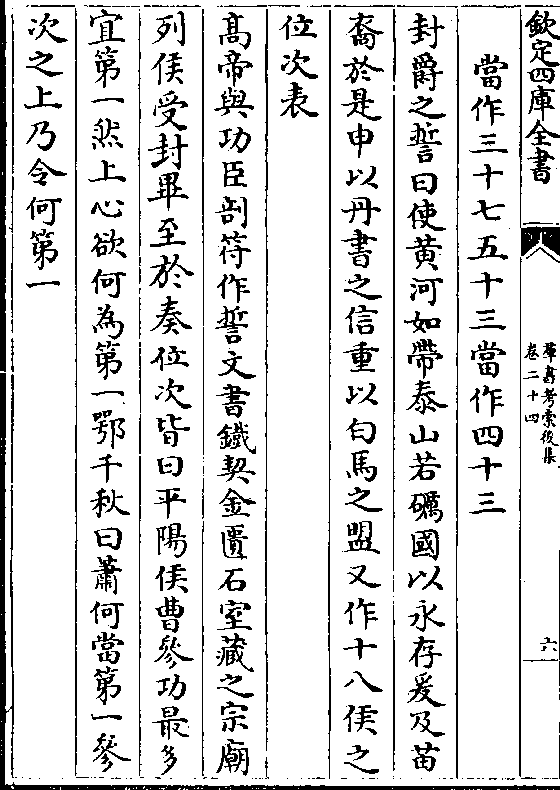 欽定四庫全書
羣書考索後集
卷二十四
六
當作三十七五十三當作四十三
封爵之誓曰使黄河如帶泰山若礪國以永存爰及苗
裔於是申以丹書之信重以白馬之盟又作十八侯之
位次表
髙帝與功臣剖符作誓文書鐵契金匱石室藏之宗廟
列侯受封畢至於奏位次皆曰平陽侯曹參功最多
宜第一然上心欲何為第一鄂千秋曰蕭何當第一參
次之上乃令何第一